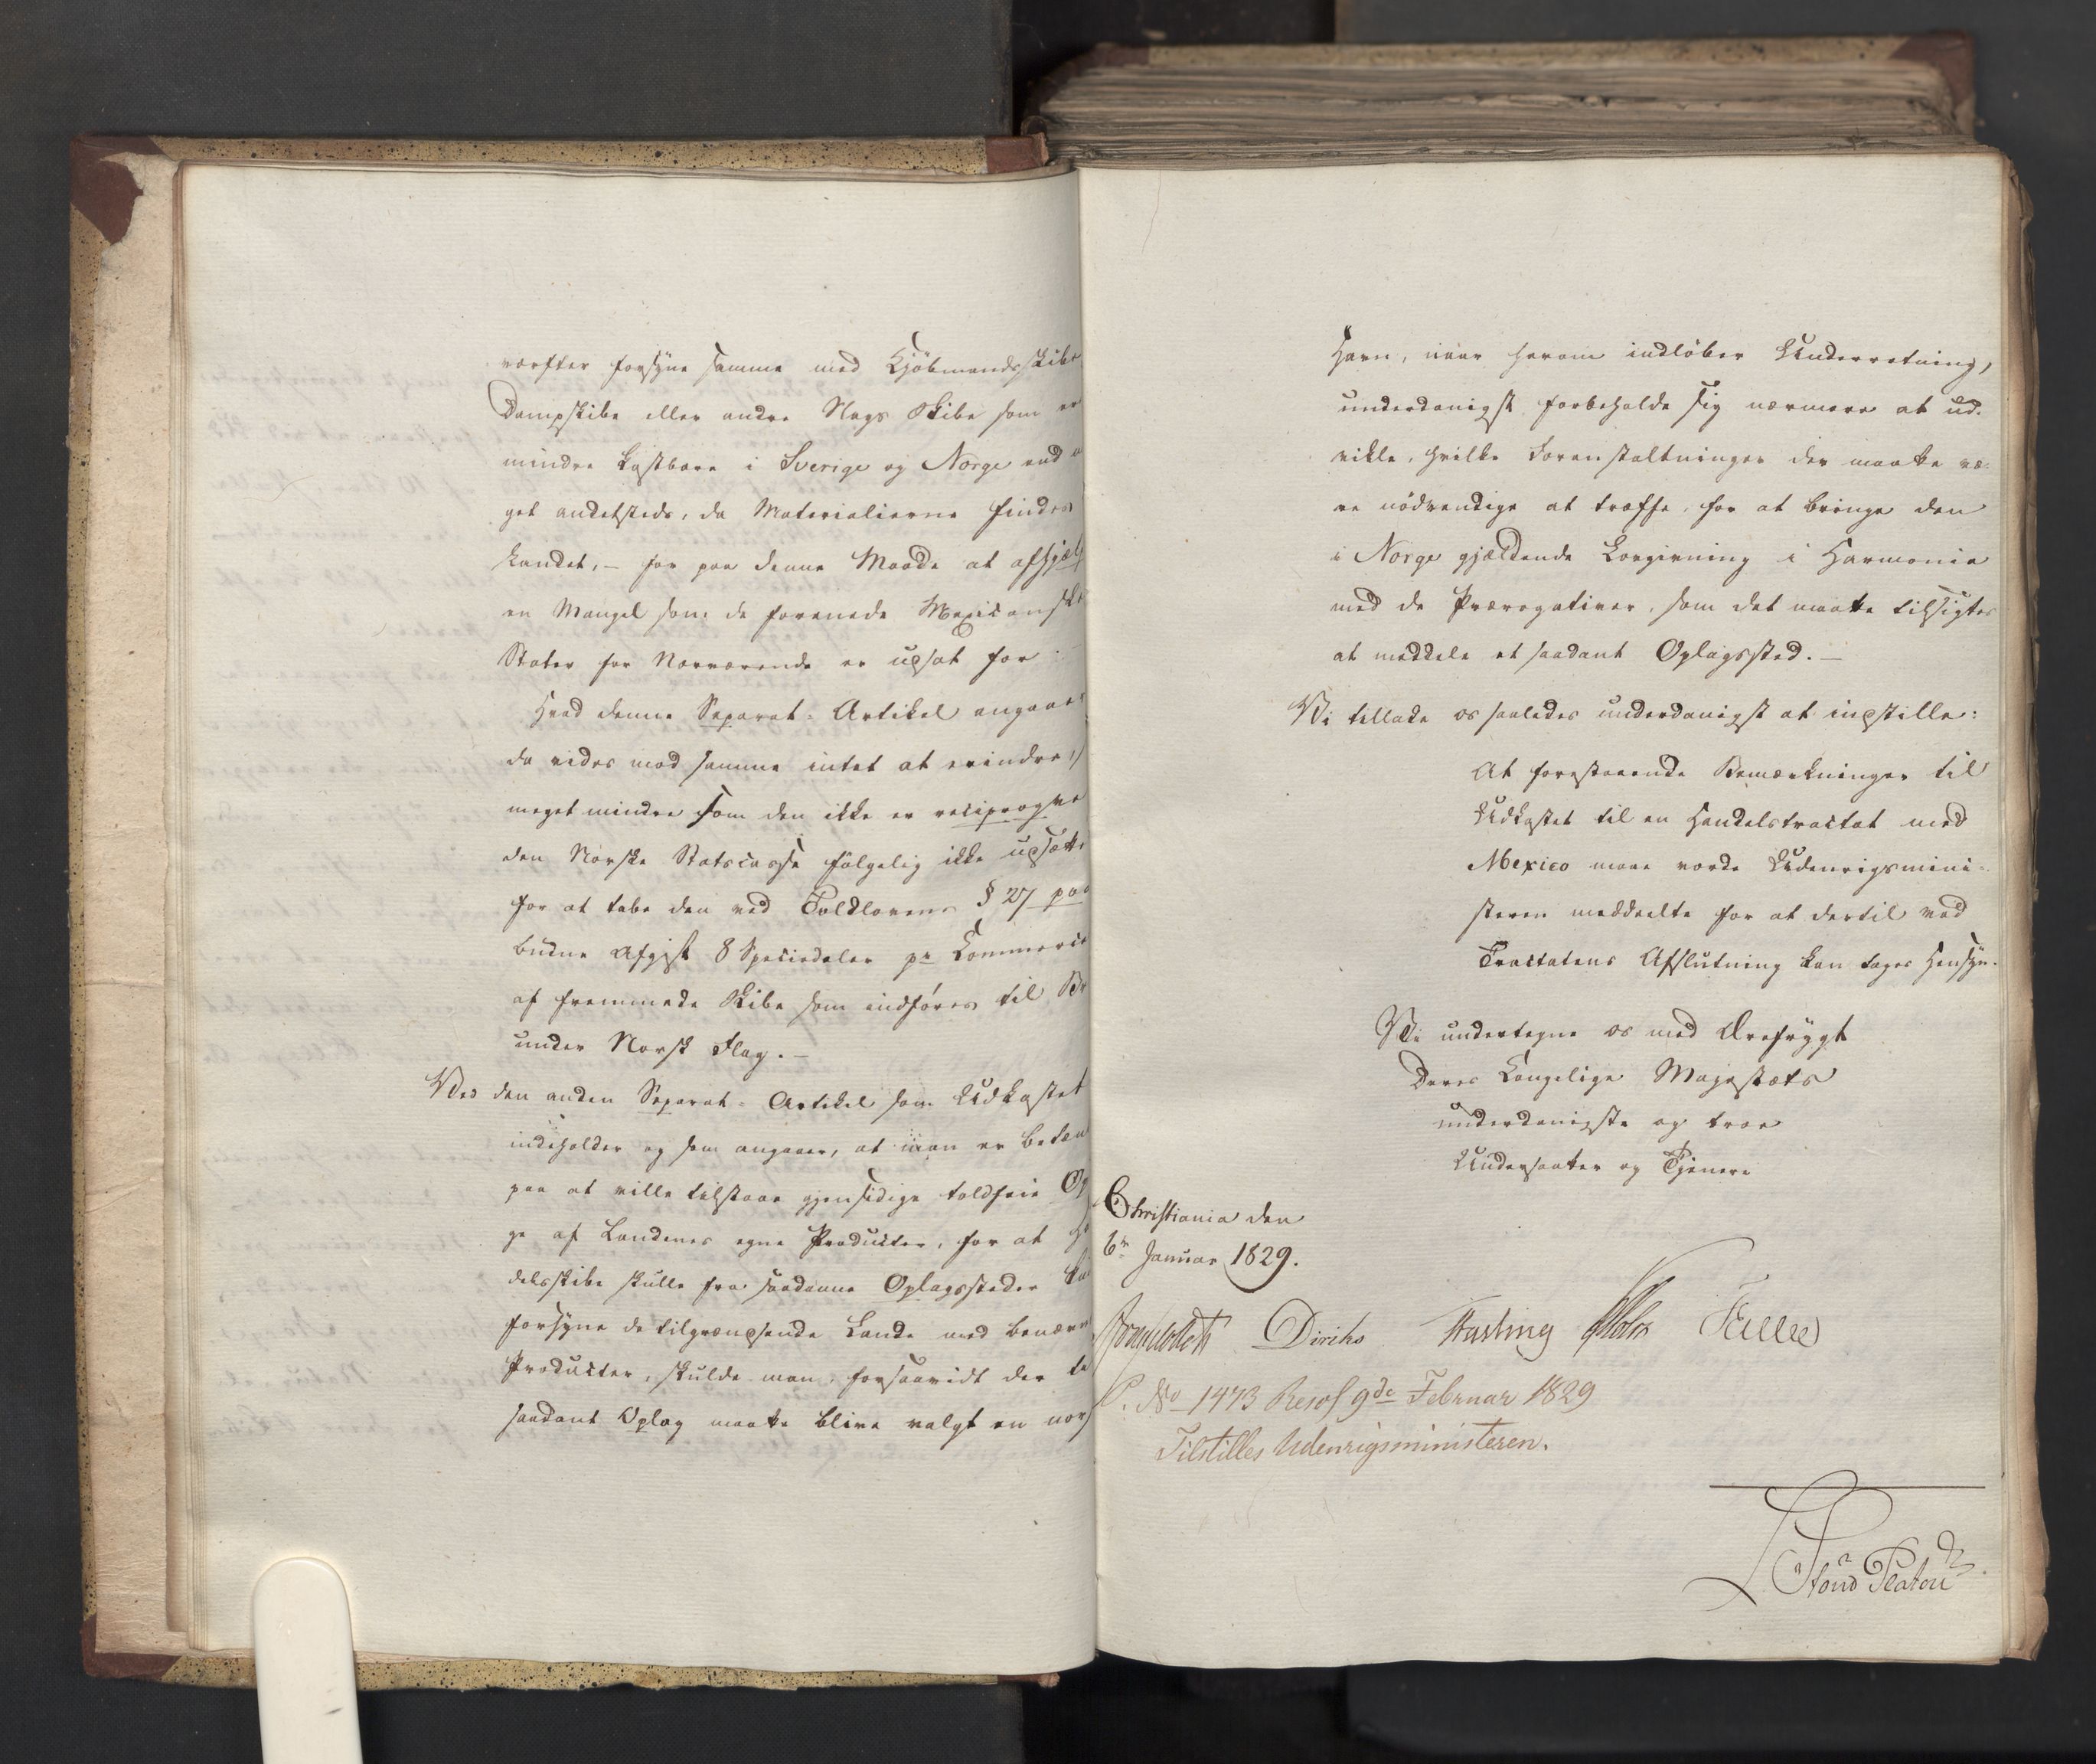 værfter forsyne samme med Kjöbmandsskibe
Dampskibe eller andre Slags Skibe som er
mindre kostbare i Sverige og Norge end
get andetsteds, da Materialierne findes
Landet, – for paa denne Maade at afhjælp
en Mangel som de forenede Mexicanske
Stater for Nærværende er udsat for
Hvad denne Separat-Artikel angaaer
da vides mod samme intet at erindre,
meget mindre som den ikke er reciproque
den Norske Statscasse fölgelig ikke udsætte
for at tabe den ved Toldlovens § 27 paa
budne Afgift 8 Speciedaler pr Commerce
af fremmede Skibe som indföres til Br
under Norsk Flag. –
Ved den anden Separat-Artikel som Udkastet
indeholder og som angaaer, at man er betæn
paa at ville tilstaae gjensidige toldfrie Op
ge af Landenes egne Producter, for at Ha
delsskibe skulle fra saadanne Oplagssteder
forsyne de tilgrændsende Lande med benævn
Producter, skulde man, forsaavidt der
saadant Oplag maatte blive valgt en norsk
Havn, naar herom indlöber Underretning,
underdanigst forbeholde sig nærmere at ud-
vikle, hvilke Foranstaltninger der maatte væ-
re nödvendige at træffe, for at bringe den
i Norge gjældende Lovgivning i Harmonie
med de Prærogativer, som det maatte tilsigtes
at meddele et saadant Oplagssted. –
Vi tillade os saaledes underdanigst at indstille:
At forestaaende Bemærkninger til
Udkastet til en Handelstractat med
Mexico maae vorde Udenrigsmini-
steren meddeelte for at dertil ved
Tractatens Afslutning kan tages Hensyn.
Vi undertegne os med Ærefrygt
Deres Kongelige Majestæts
underdanigste og troe
Undersaatter og Tjenere
Christiania den
6te Januar 1829.
Diriks Fasting Holst
P. No 1473 Resol 9de Februar 1829
Tilstilles Udenrigsministeren.
Platou